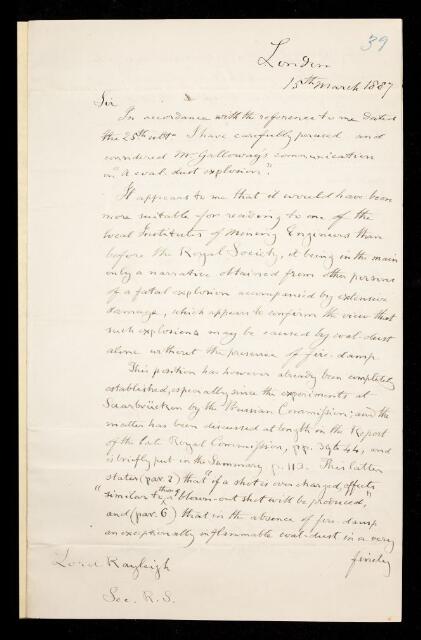 39
London
15th March 1887
Sir
In accordance with the reference to me dated
the 25th ult I have carefully perused and
considered Mr Galloway's communication
on "A coal dust explosion".
It appears to me that it would have been
more suitable for reading to one of the
local Institutes of Mining Engineers than
before the Royal Society, it being in the main
only a narrative obtained from other persons
of a fatal explosion accompanied by extensive
damage, which appears to confirm the view that
such explosions may be caused by coal-dust
alone without the presence of fire-damp.
This position has however already been completely
established, especially since the experiments at
Saarbrücken by the Prussian Commission; and the
matter has been discussed at length in the Report
of the late Royal Commission, pp. 39 to 44, and
is briefly put in the Summary p. 113. This latter
states (par. 2) that "if a shot is over charged, effects
"similar to those of blown-out shot will be produced,"
and (par. 6) that in the absence of fire-damp
an exceptionally inflammable coal-dust in a very
finely
Lord Rayleigh
Sec. R. S.